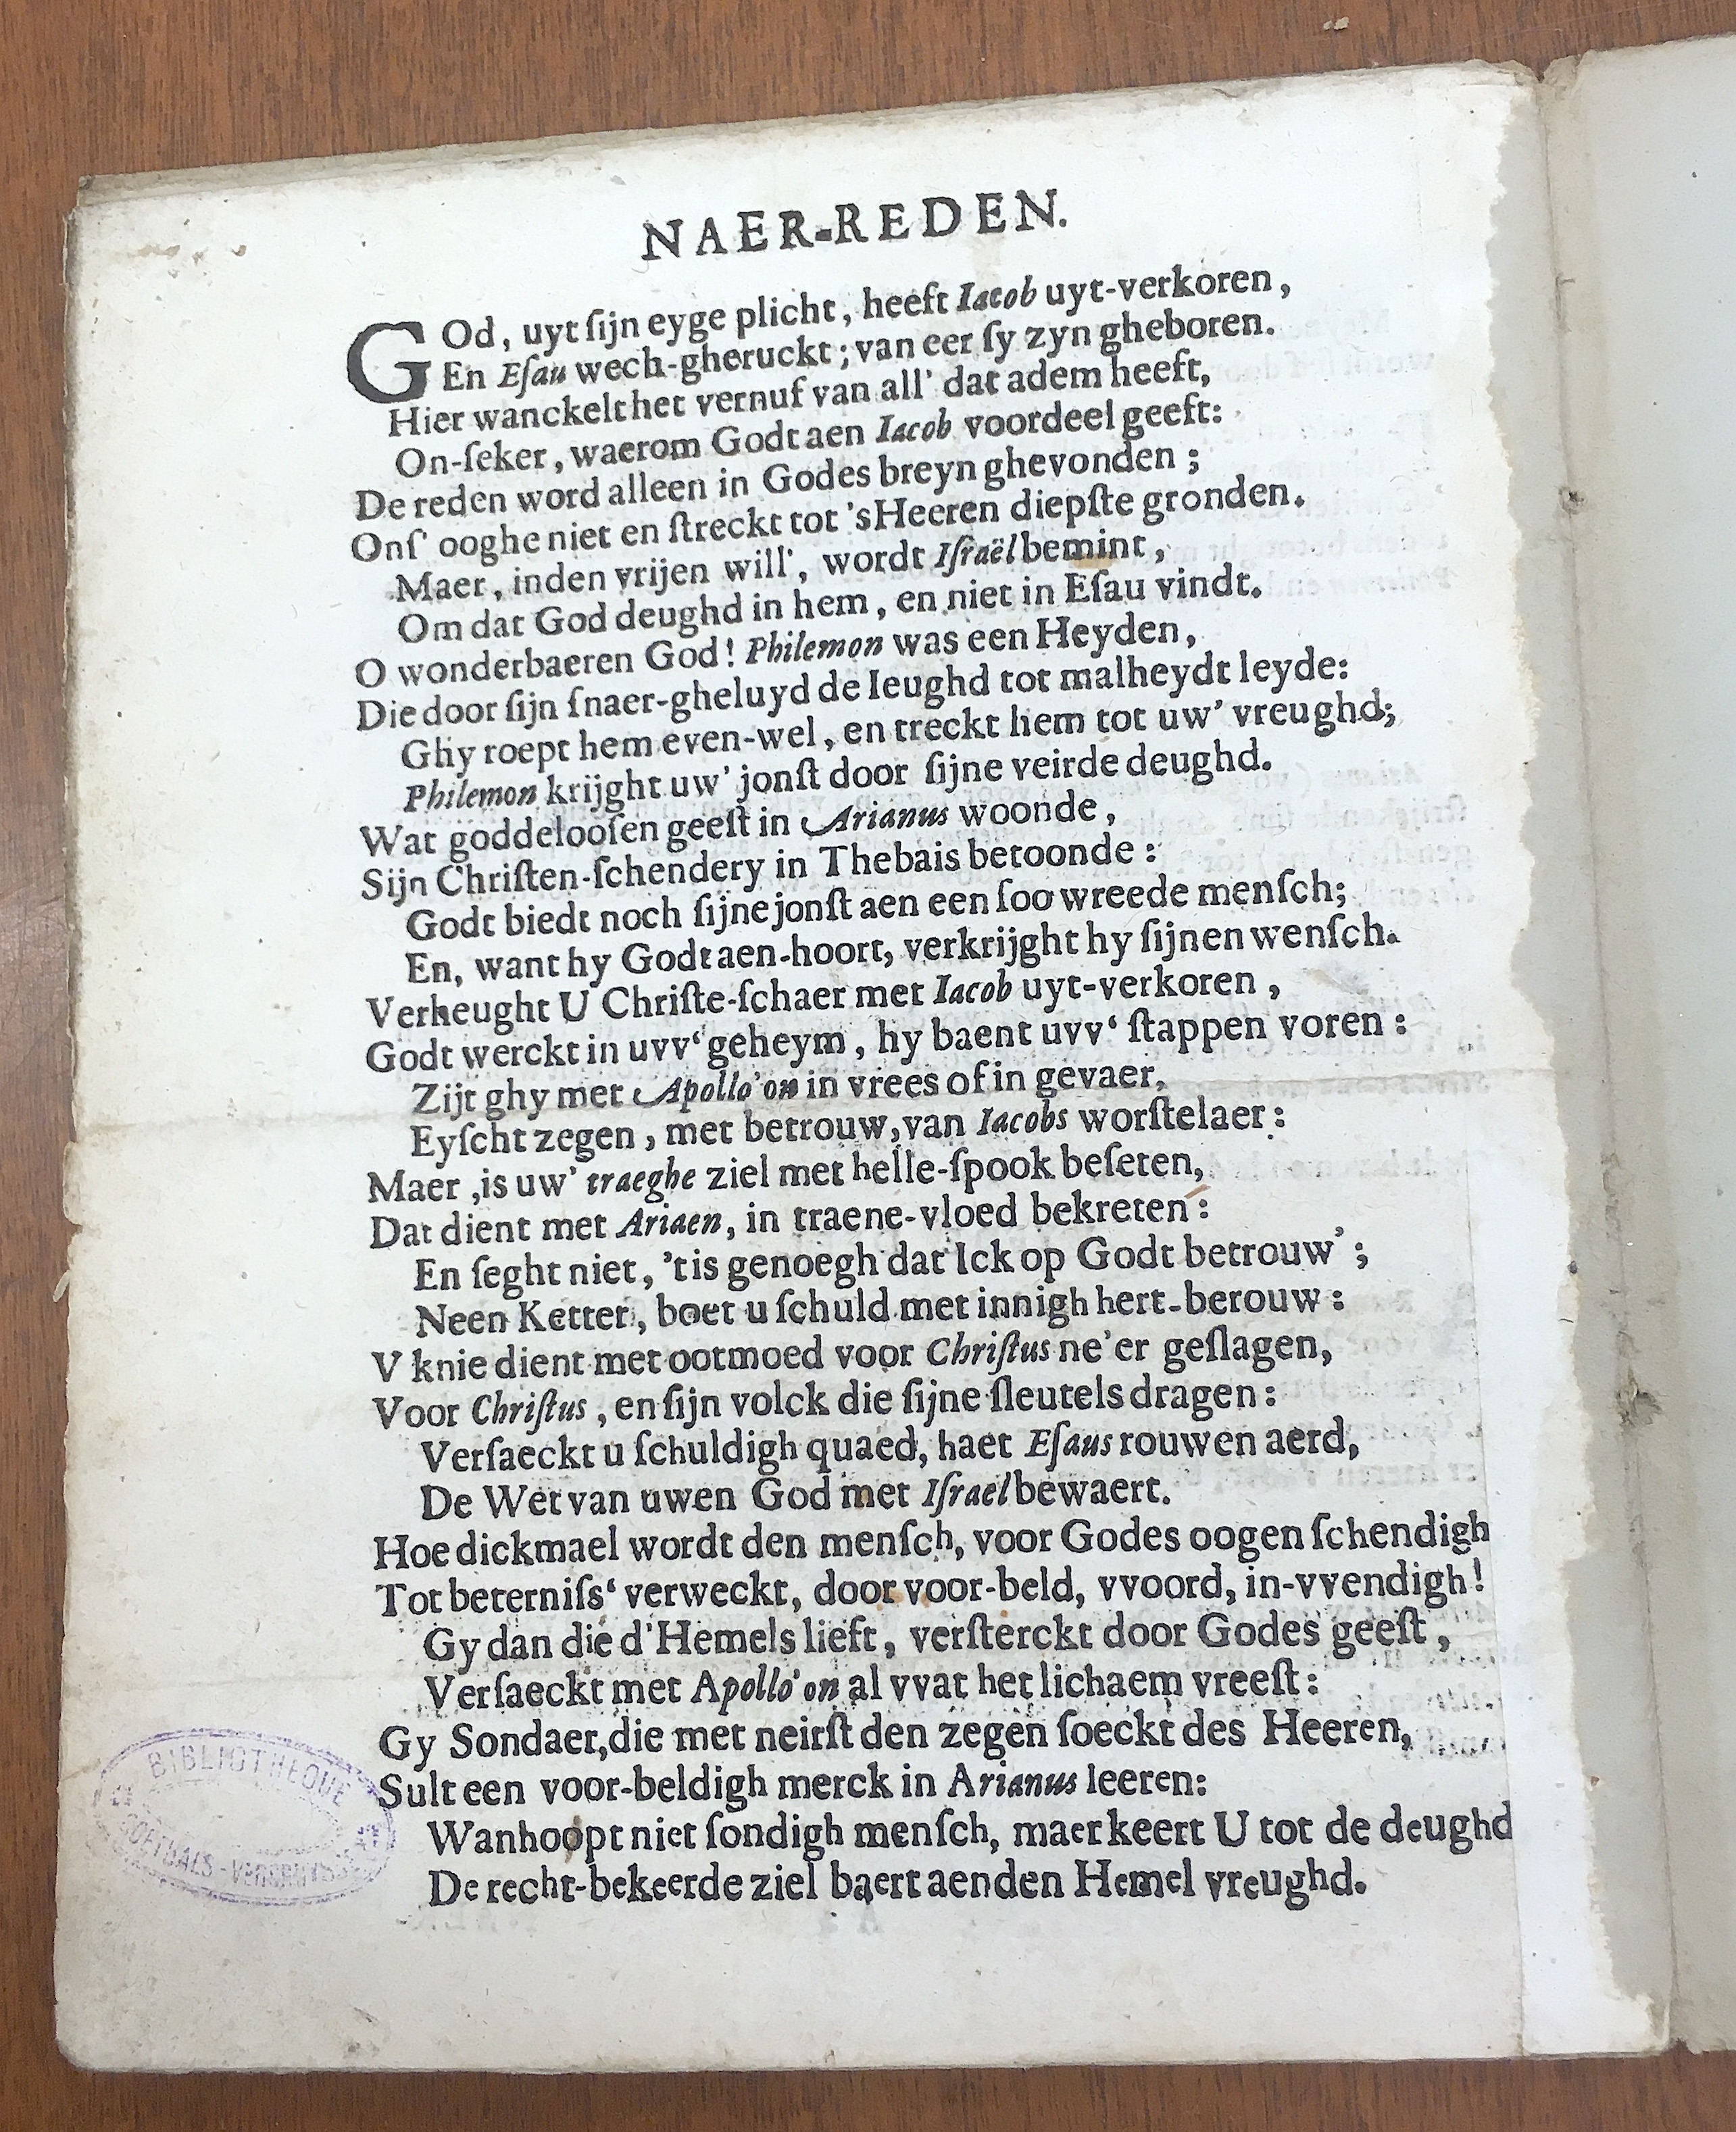 NAER-REDEN.
GOd, uyt ſijn eyge plicht, heeft Iacob uyt-verkoren,
En Eſau wech-gheruckt; van eer ſy zyn gheboren.
Hier wanckelt het vernuf van all' dat adem heeft,
On-ſeker, waerom Godt aen Iacob voordeel geeft:
De reden word alleen in Godes breyn ghevonden;
Onſ' ooghe niet en ſtreckt tot 's Heeren diepſte gronden.
Maer, inden vrijen will', wordt Iſraël bemint,
Om dat God deughd in hem, en niet in Eſau vindt.
O wonderbaeren God! Philemon was een Heyden,
Die door ſijn ſnaer-gheluyd de Ieughd tot malheydt leyde:
Ghy roept hem even-wel, en treckt hem tot uw' vreughd;
Philemon krijght uw' jonſt door ſijne veirde deughd.
Wat goddelooſen geeſt in Arianus woonde,
Sijn Chriſten-ſchendery in Thebais betoonde:
Godt biedt noch ſijne jonſt aen een ſoo wreede menſch;
En, want hy Godt aen-hoort, verkrijght hy ſijnen wenſch.
Verheught U Chriſte-ſchaer met Iacob uyt-verkoren,
Godt werckt in uvv‘ geheym, hy baent uvv‘ ſtappen voren:
Zijt ghy met Apollo'on in vrees of in gevaer,
Eyſcht zegen, met betrouw, van Iacobs worſtelaer:
Maer, is uw' traeghe ziel met helle-ſpook beſeten,
Dat dient met Ariaen, in traene-vloed bekreten:
En ſeght niet, 'tis genoegh dat Ick op Godt betrouw';
Neen Ketter, boet u ſchuld met innigh hert-berouw:
V knie dient met ootmoed voor Chriſtus ne'er geſlagen,
Voor Chriſtus, en ſijn volck die ſijne ſleutels dragen:
Verſaeckt u ſchuldigh quaed, haet Eſaus rouwen aerd,
De Wet van uwen God met Iſrael bewaert.
Hoe dickmael wordt den menſch, voor Godes oogen ſchendigh
Tot beterniſs‘ verweckt, door voor-beld, vvoord, in-vvendigh!
Gy dan die d'Hemels lieft, verſterckt door Godes geeſt,
Verſaeckt met Apollo'on al vvat het lichaem vreeſt:
Gy Sondaer, die met neirſt den zegen ſoeckt des Heeren,
Sult een voor-beldigh merck in Arianus leeren:
Wanhoopt niet ſondigh menſch, maer keert U tot de deughd
De recht-bekeerde ziel baert aenden Hemel vreughd.
BIBLIOTHEQUE
GOETHALS-VERCRUYSSE